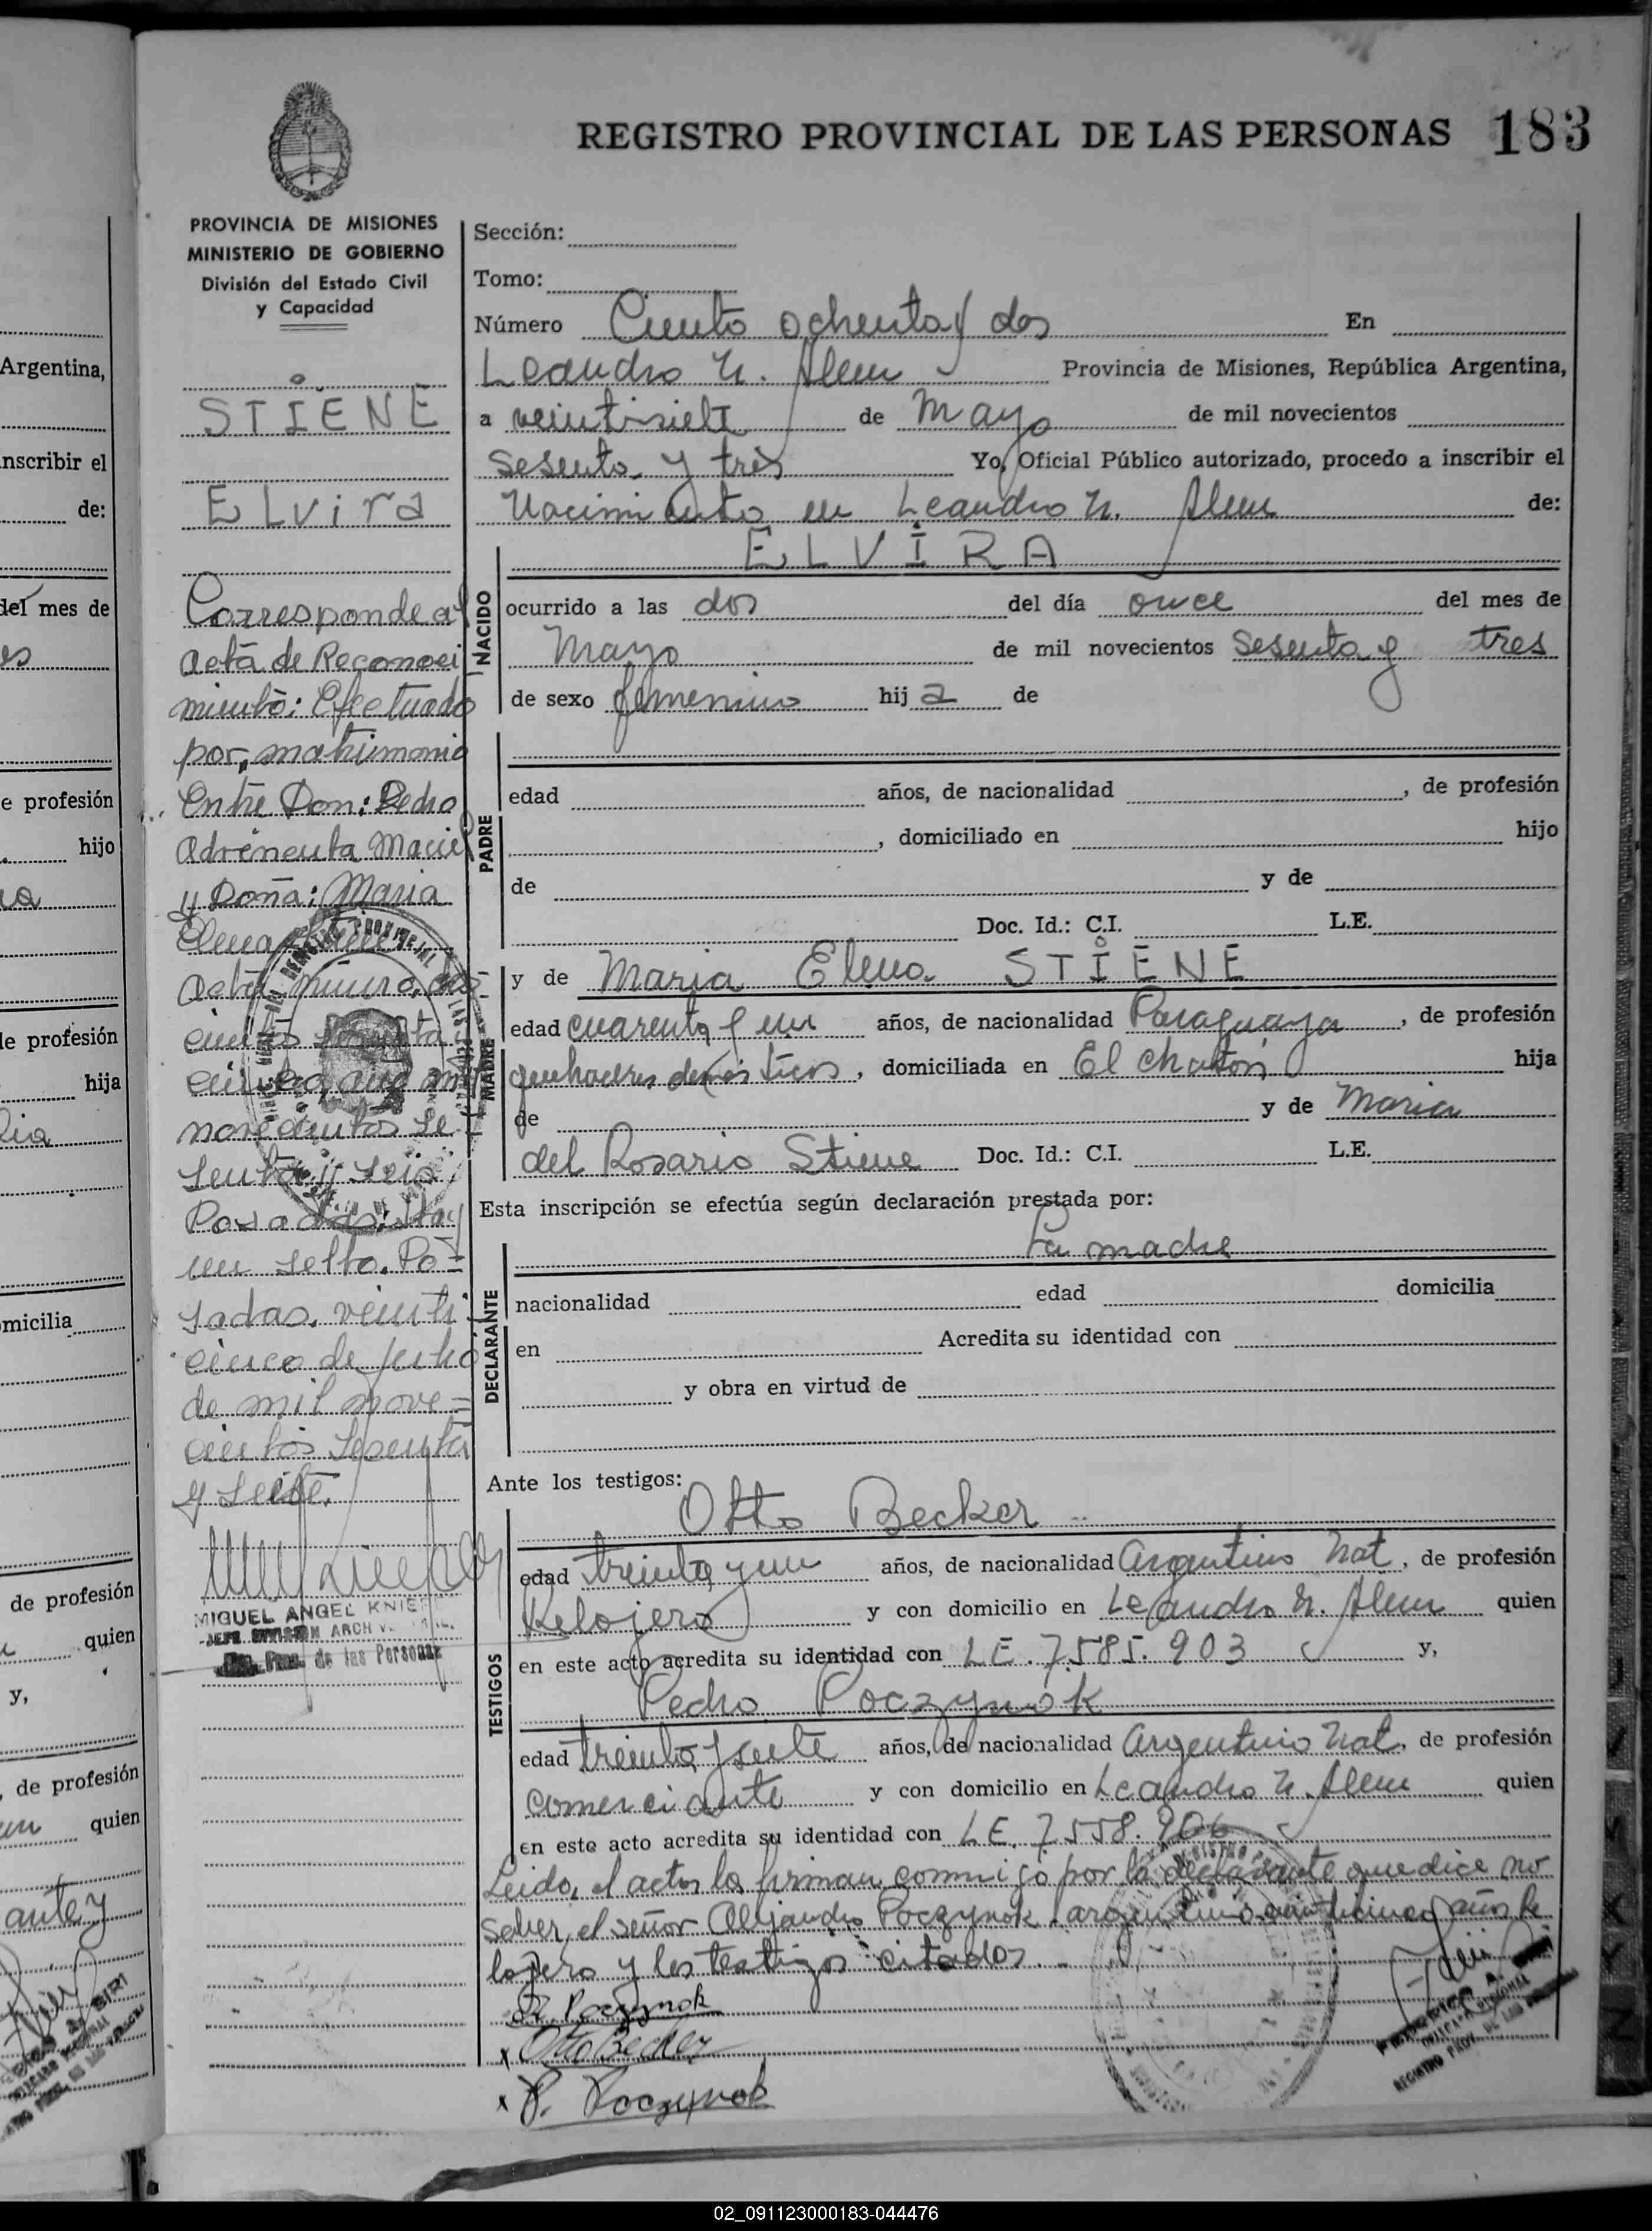 REGISTRO PROVINCIAL DE LAS PERSONAS 183
PROVINCIA DE MISIONES
MINISTERIO DE GOBIERNO
División del Estado Civil
y Capacidad
STIENE
ELvira
Corresponde al
acta de Reconoci
miento: Efectuado
por matrimonio
Entre Don: Pedro
Maciel
y Doña: Maria
Elena Stiene
Acta número dos
cientos
cinco, año mil
novecientos se
senta y seis
Posadas. Hay
un sello. Po=
sadas, veinti
cinco de julio
de mil nove=
cientos sesenta
y siete.
MIGUEL ANGEL
JEFE DIVISION ARCH
de las Personas
Sección:
Tomo:
Número Ciento ochenta y dos En
Leandro N. Alem Provincia de Misiones, República Argentina,
a veintisiete de Mayo de mil novecientos
sesenta y tres Yo, Oficial Público autorizado, procedo a inscribir el
Nacimiento en Leandro N. Alem de:
ELVIRA
NACIDO
ocurrido a las dos del día once del mes de
Mayo de mil novecientos sesenta y tres
de sexo femenino hij a de
PADRE
edad años, de nacionalidad , de profesión
, domiciliado en hijo
de y de
Doc. Id.: C.I. L.E.
MADRE
y de Maria Elena STIENE
edad cuarenta y un años, de nacionalidad Paraguaya , de profesión
quehaceres domésticos , domiciliada en El Chatón hija
de y de Maria
del Rosario Stiene Doc. Id.: C.I. L.E.
Esta inscripción se efectúa según declaración prestada por:
La madre
DECLARANTE
nacionalidad edad domicilia
en Acredita su identidad con
y obra en virtud de
Ante los testigos:
TESTIGOS
Otto Becker
edad treinta y un años, de nacionalidad Argentino Nat , de profesión
Relojero y con domicilio en Leandro N. Alem quien
en este acto acredita su identidad con LE. 7.585.903 y,
Pedro Poczynok
edad treinta y siete años, de nacionalidad Argentino Nat , de profesión
comerciante y con domicilio en Leandro N. Alem quien
en este acto acredita su identidad con LE. 7.558.906
Leido, el acta la firman conmigo por la declarante que dice no
saber, el señor Alejandro Poczynok, argentino, veinticinco años Re
lojero y los testigos citados.-
A. Poczynok
x Otto Becker
x P. Poczynok
Argentina,
inscribir el
de:
del mes de
de profesión
hijo
de profesión
hija
domicilia
de profesión
quien
y,
, de profesión
quien
02_091123000183-044476